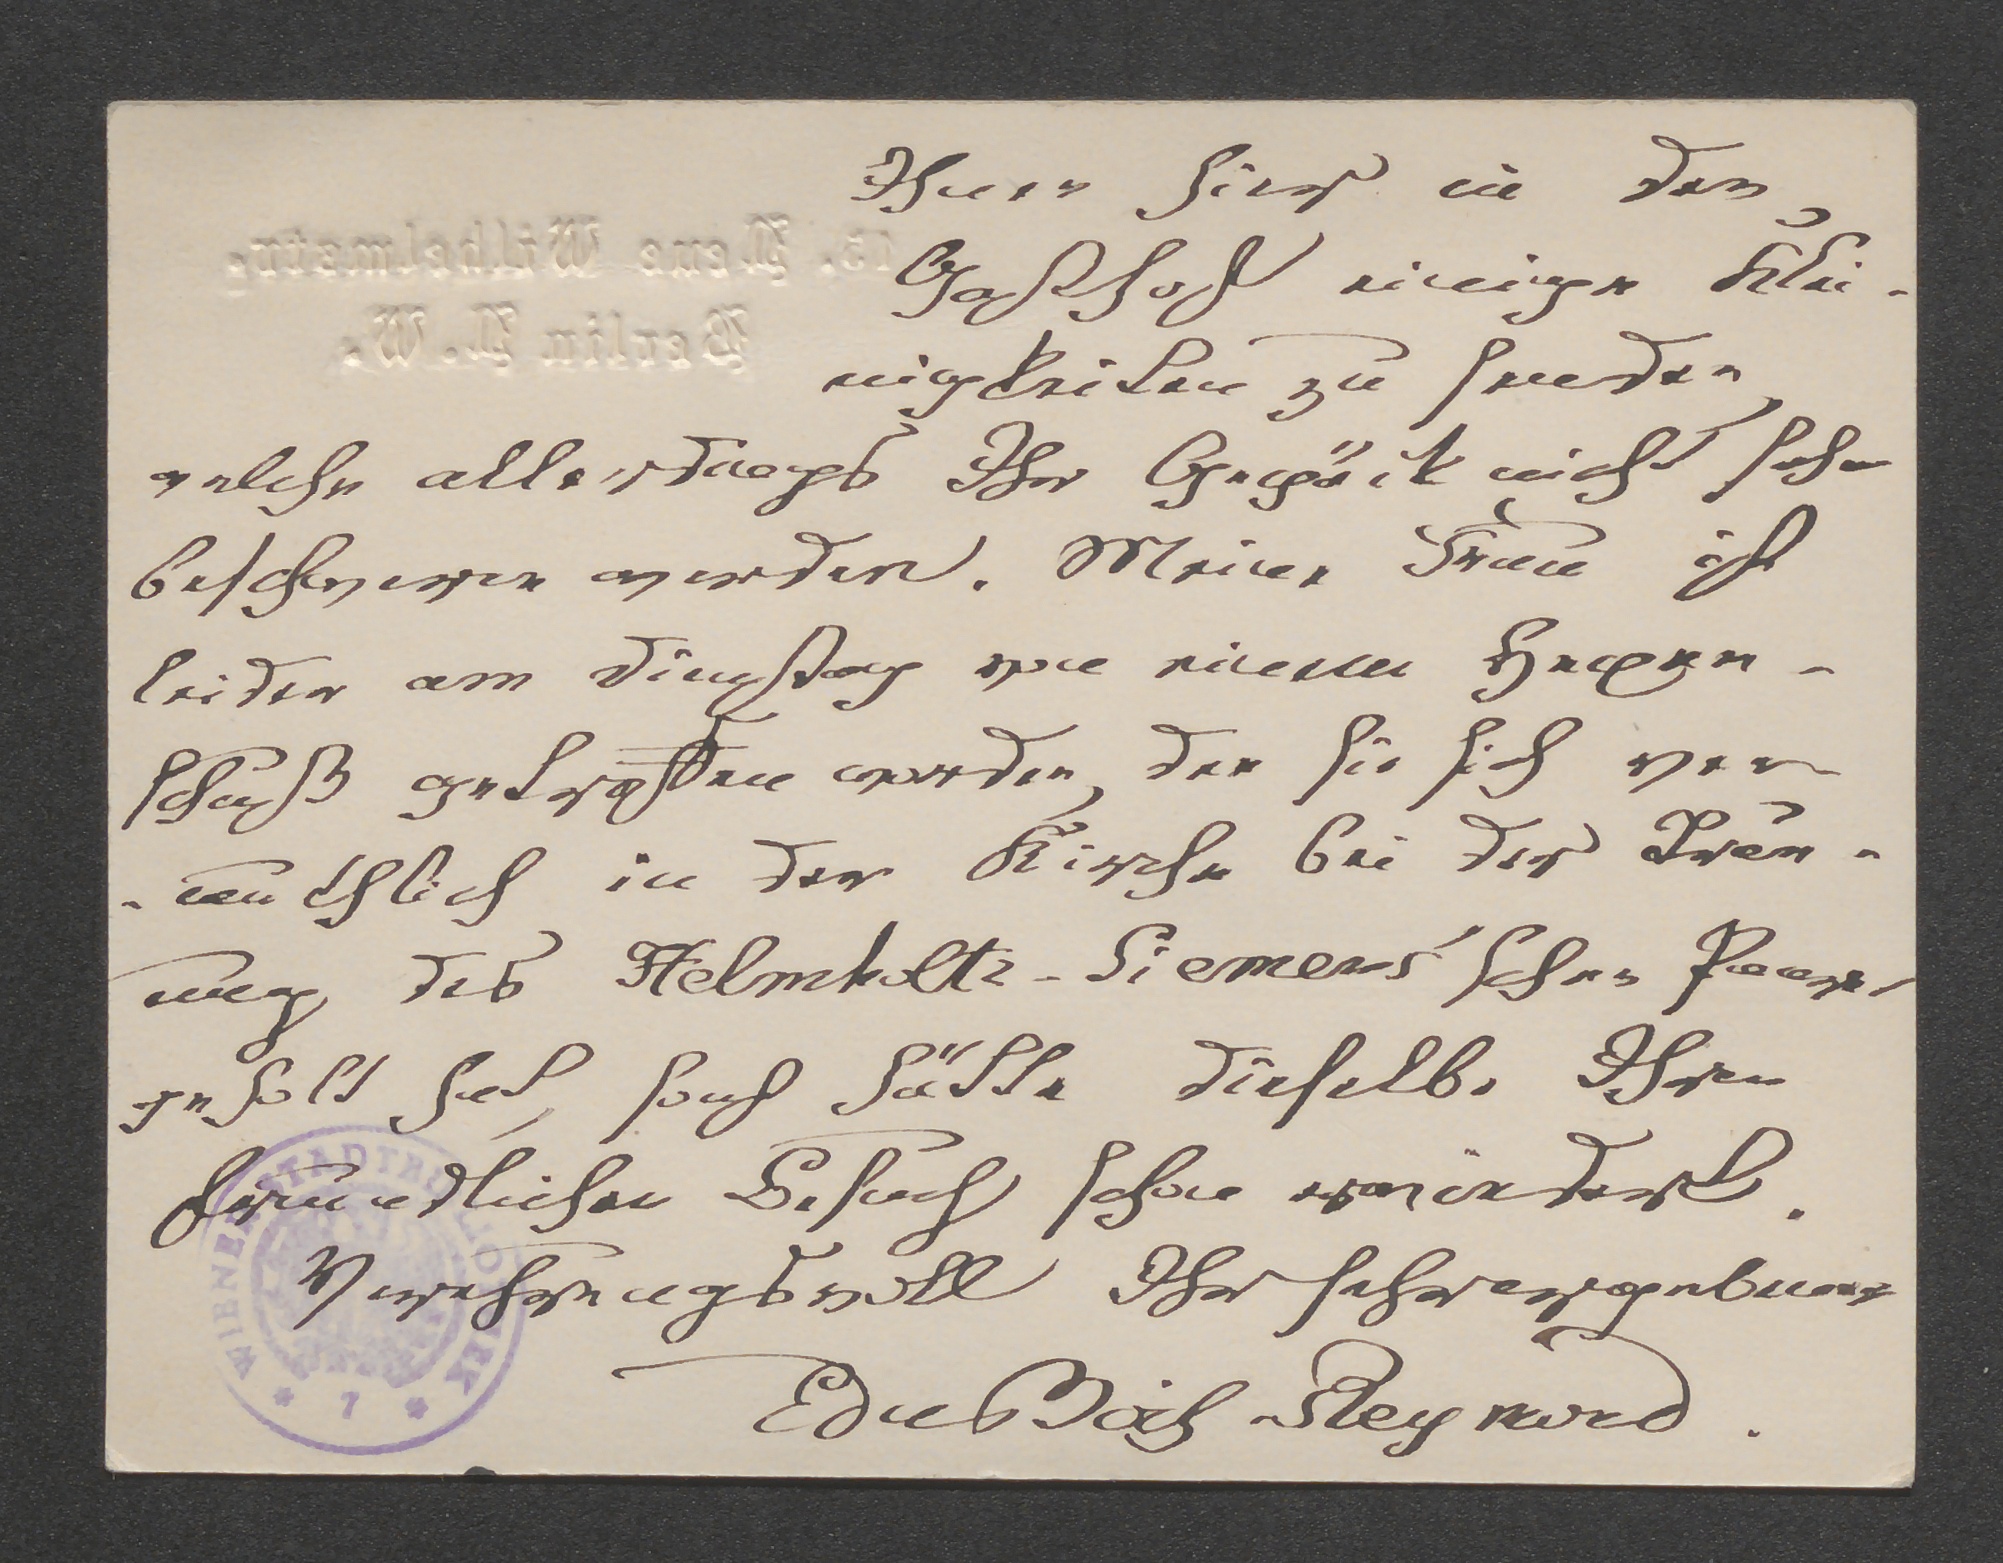 13. Neue Wilhelmstr.
Berlin N.W.
Ihnen hier in den
Gasthof einige Klei-
nigkeiten zu senden,
welche allerdings Ihr Gepäck nicht sehr
beschweren werden. Meine Frau ist
leider am Dingstag von einem Hexen-
schuß getroffen worden, den sie sich ver-
-muthlich in der Kirche bei der Trau-
ung des Helmholtz-Siemens'schen Paares
geholt hat, sonst hätte dieselbe Ihren
freundlichen Besuch schon erwiedert.
Verehrungsvoll Ihr sehr ergebener
WIENER STADTBIBLIOTHEK
* 7 *